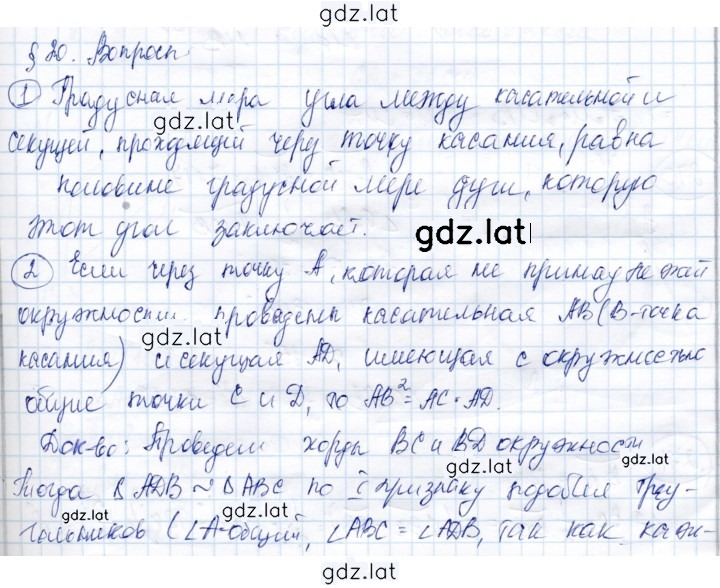 gdz.lat
§ 20. Вопросы
① Градусная мера угла между касательной и
gdz.lat
секущей, проходящей через точку касания, равна
половине градусной мере дуги, которую
gdz.lat
этот угол заключает.
gdz.lat
② Если через точку A, которая не принадлежай
окружности проведены касательная AB (B-точка
gdz.lat
касания) и секущая AD, имеющая с окружностью
общие точки C и D, то AB² = AC · AD.
gdz.lat
Док-во: Проведем хорды BC и BD окружности
Тогда ∆ ADB ~ ∆ ABC по I признаку подобия треу-
gdz.lat
гольников (∠A-общий, ∠ABC = ∠ADB, так как каж-
gdz.lat